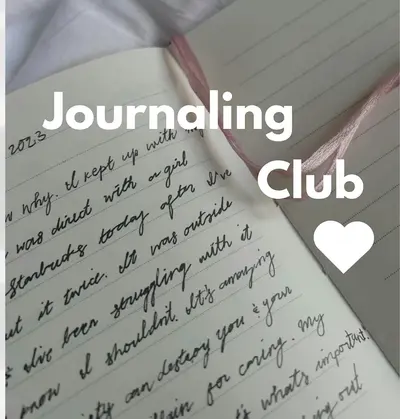 Journaling
Club
2023
why. I kept up with my
was direct with a girl
Starbucks today after I've
it twice. It was outside
I've been struggling with it
know I shouldn't. It's amazing
can destroy you & your
for caring. My
it's what's important.
out